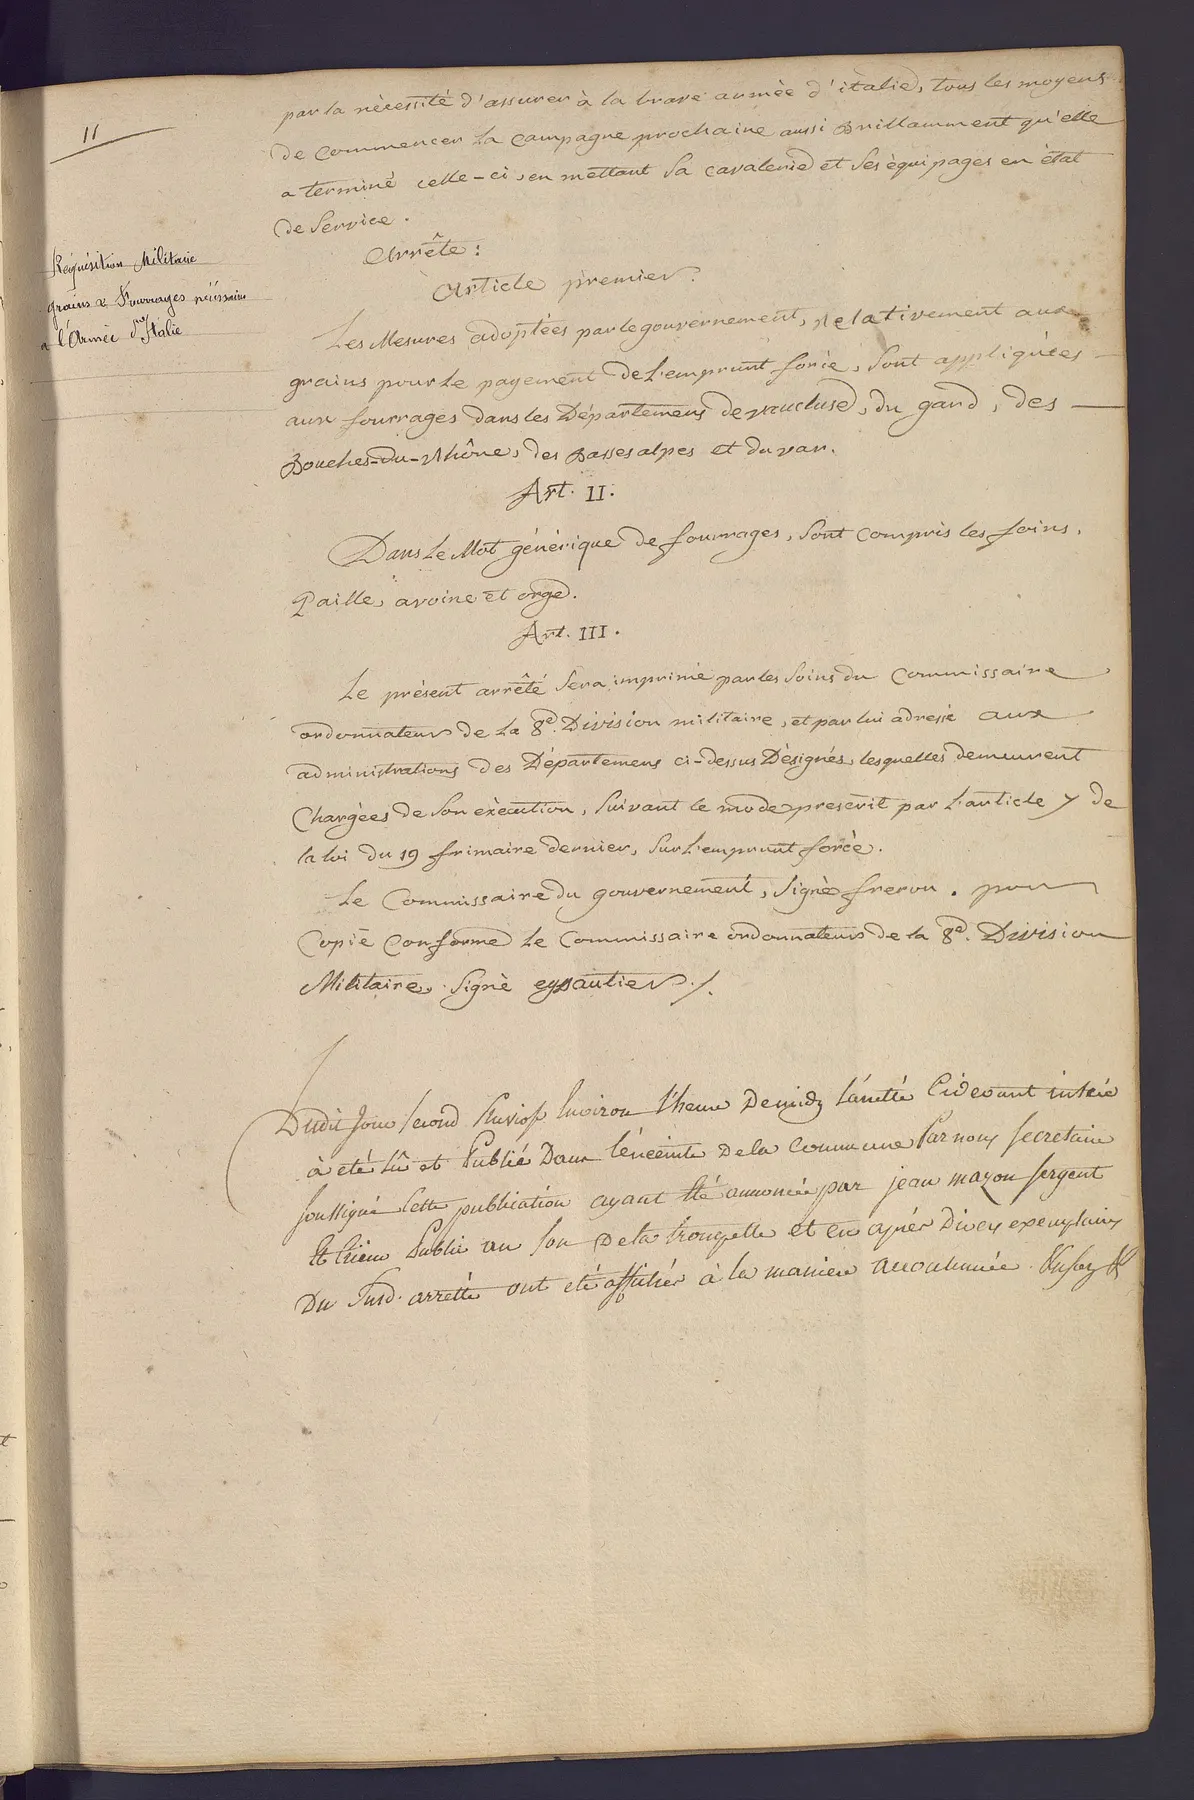 11
Requisition Militaire
grains & Fourrages nécessaire
a l'Armée d'Italie
par la nécessité d'assurer à la brave armée d'italie, tous les moyens
de commencer la campagne prochaine aussi Brillamment qu'elle
a terminé celle-ci, en mettant sa cavalerie et ses équipages en état
de service.
Arrête :
Article premier.
Les Mesures adoptées par le gouvernement, relativement aux
grains pour le payement de L'emprunt forcé, sont appliquées
aux fourrages dans les Départemens de vaucluse, du gard, des
Bouches-du-Rhône, des Basses alpes et du var.
Art. II.
Dans Le Mot générique de fourrages, sont compris les foins,
Paille, avoine et orge.
Art. III.
Le présent arrêté sera imprimé par les soins du Commissaire
ordonnateur de la 8e. Division militaire, et par lui adressé aux
administrations des Départemens ci-dessus Désignés, lesquelles demeurent
Chargées de son exécution, suivant le mode prescrit par L'article 7 de
la loi du 19 frimaire dernier, sur L'emprunt forcé.
Le Commissaire du gouvernement, signé freron. pour
Copie Conforme Le Commissaire ordonnateur de la 8e. Division
Militaire. signé eyssautier ./.
Dudit jour second Pluviose Environ l'heure De midy l'arretté Cidevant inséré
à eté lû et Publié Dans l'enceinte De la Commune Par nous secretaire
soussigné Cette publication ayant Eté annoncée par jean mayon sergent
Et Crieur Public au son De la trompette et en après Divers exemplaires
Du susd. arretté ont eté affichés à la maniere accoutumée.